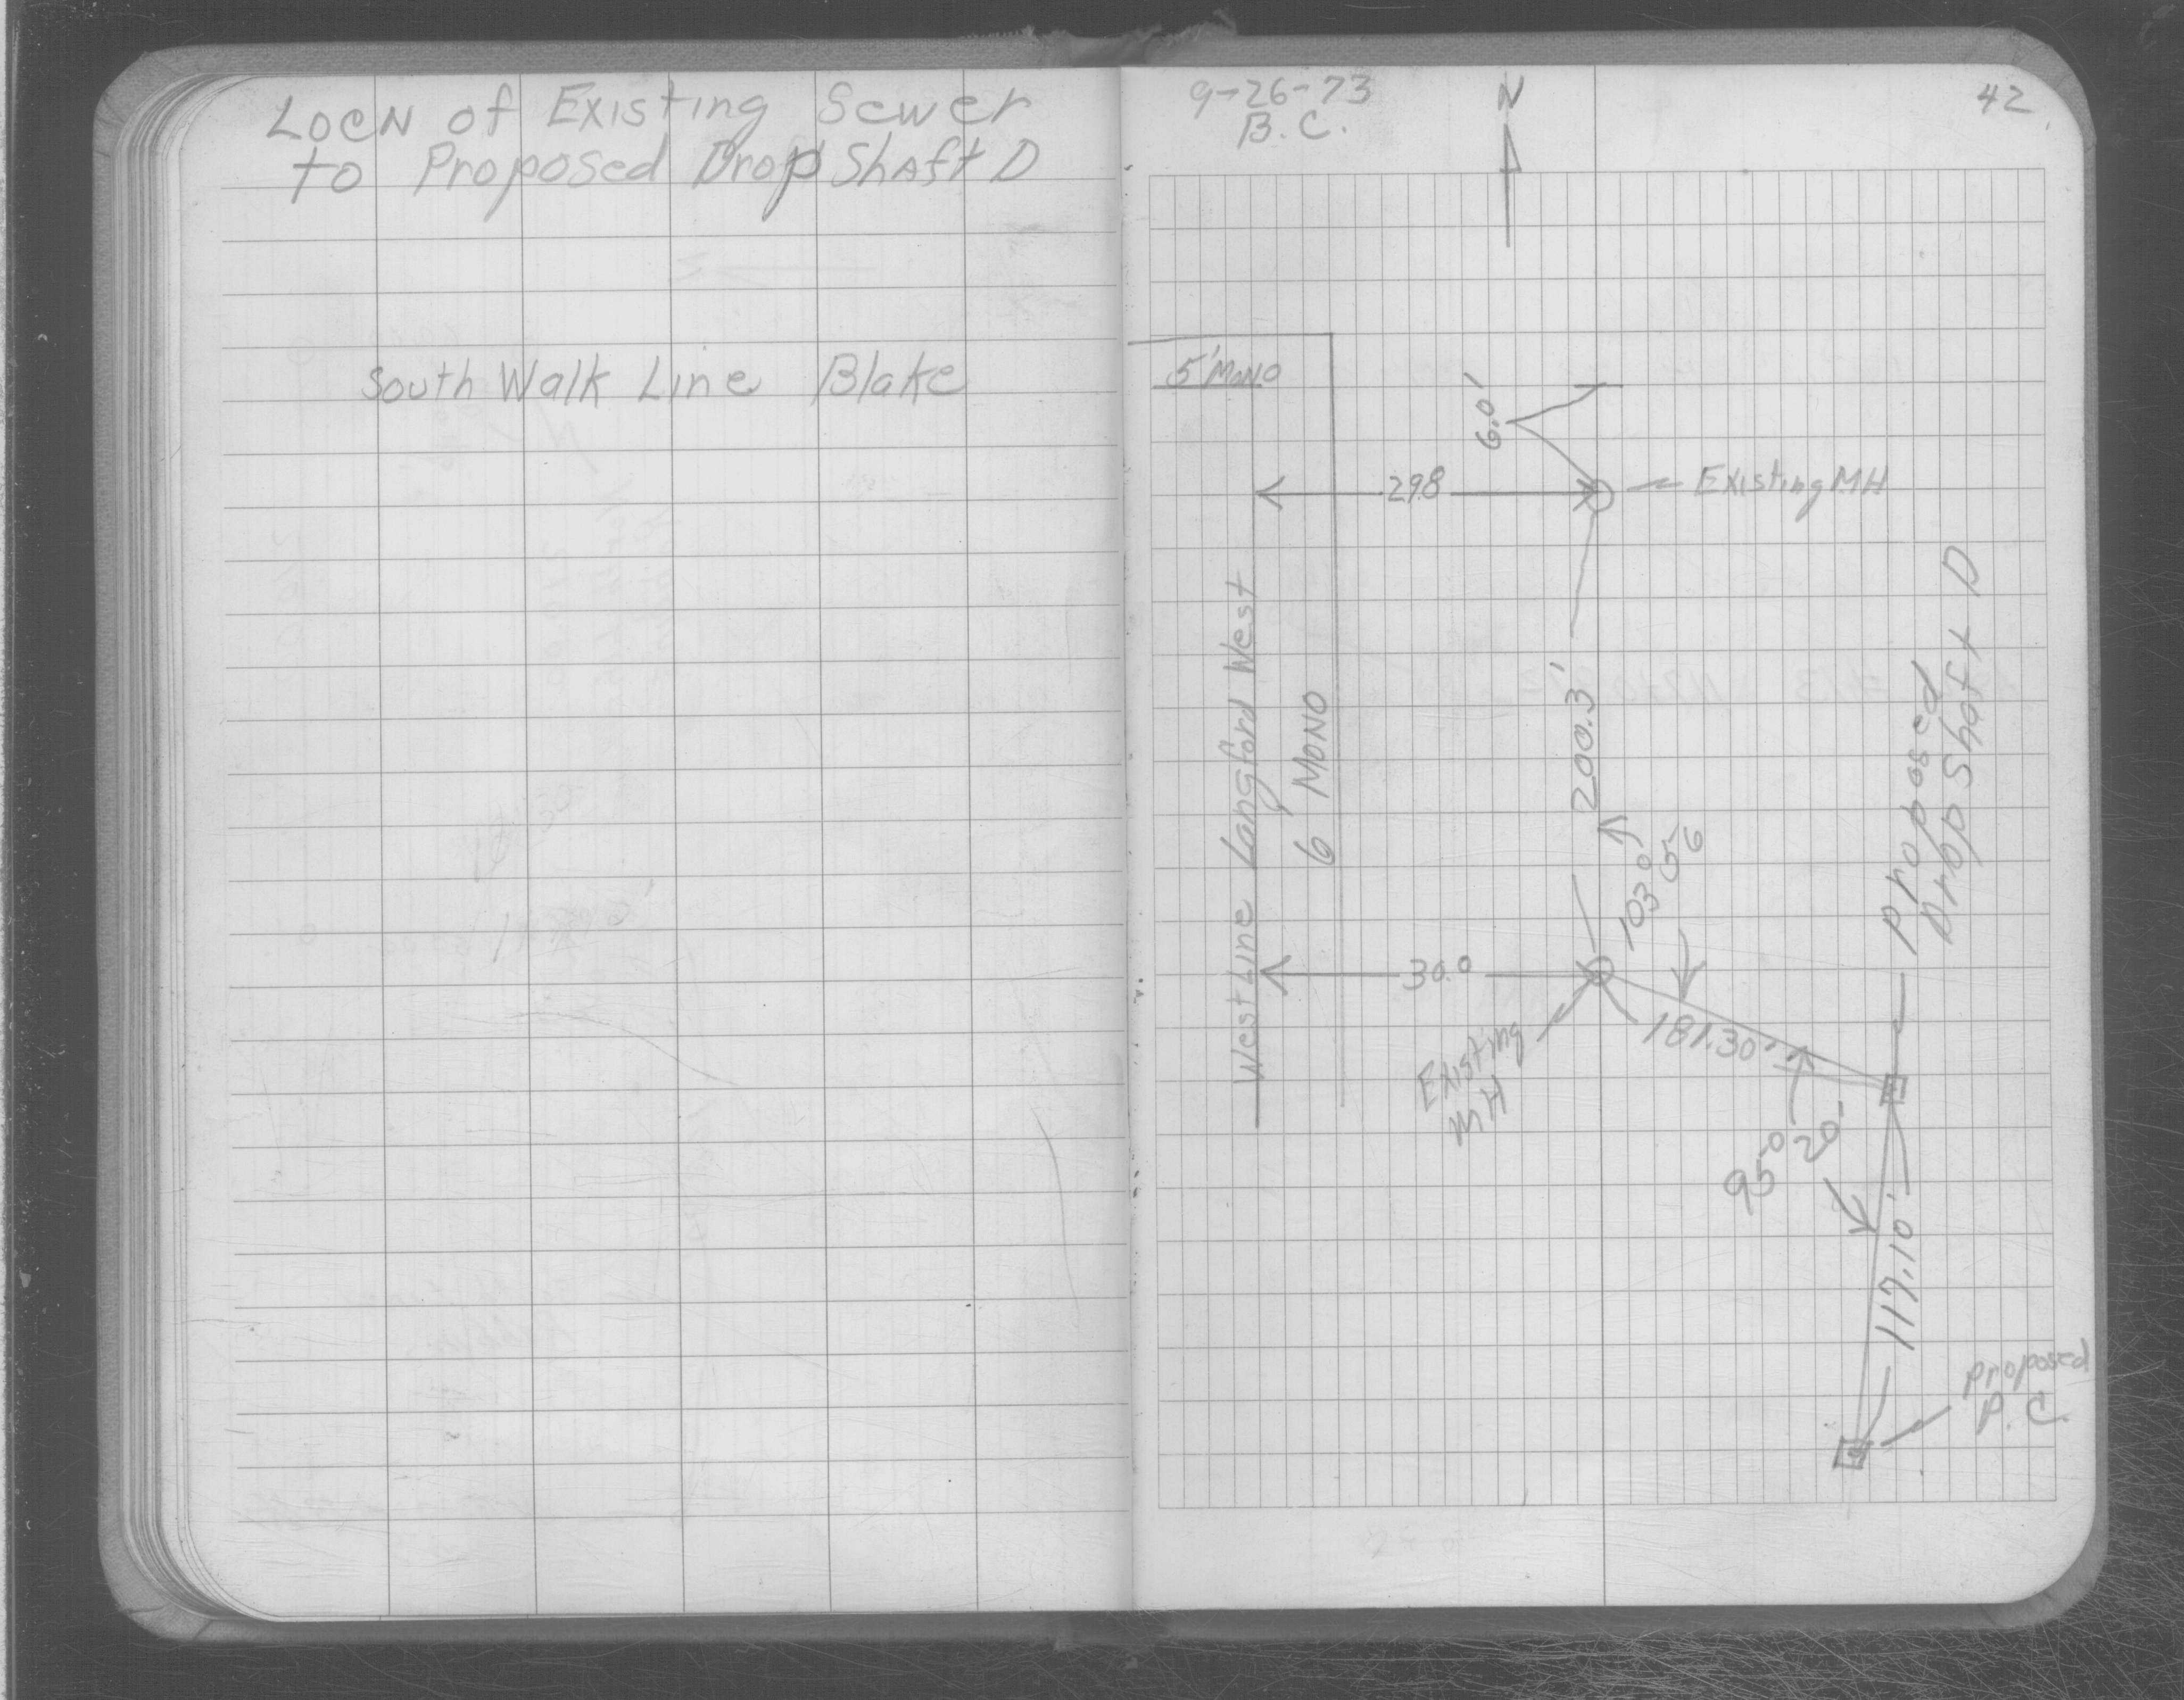 Locn of Existing Sewer
to Proposed Drop Shaft D
South Walk Line Blake
9-26-73
B.C.
N
42
5' MONO
6.0'
29.8
Existing MH
West Line Langford West
6' MONO
200.3'
103° 05'
Proposed
Drop Shaft D
30.0
Existing
MH
181.30'
95° 20'
117.10'
Proposed
P.C.